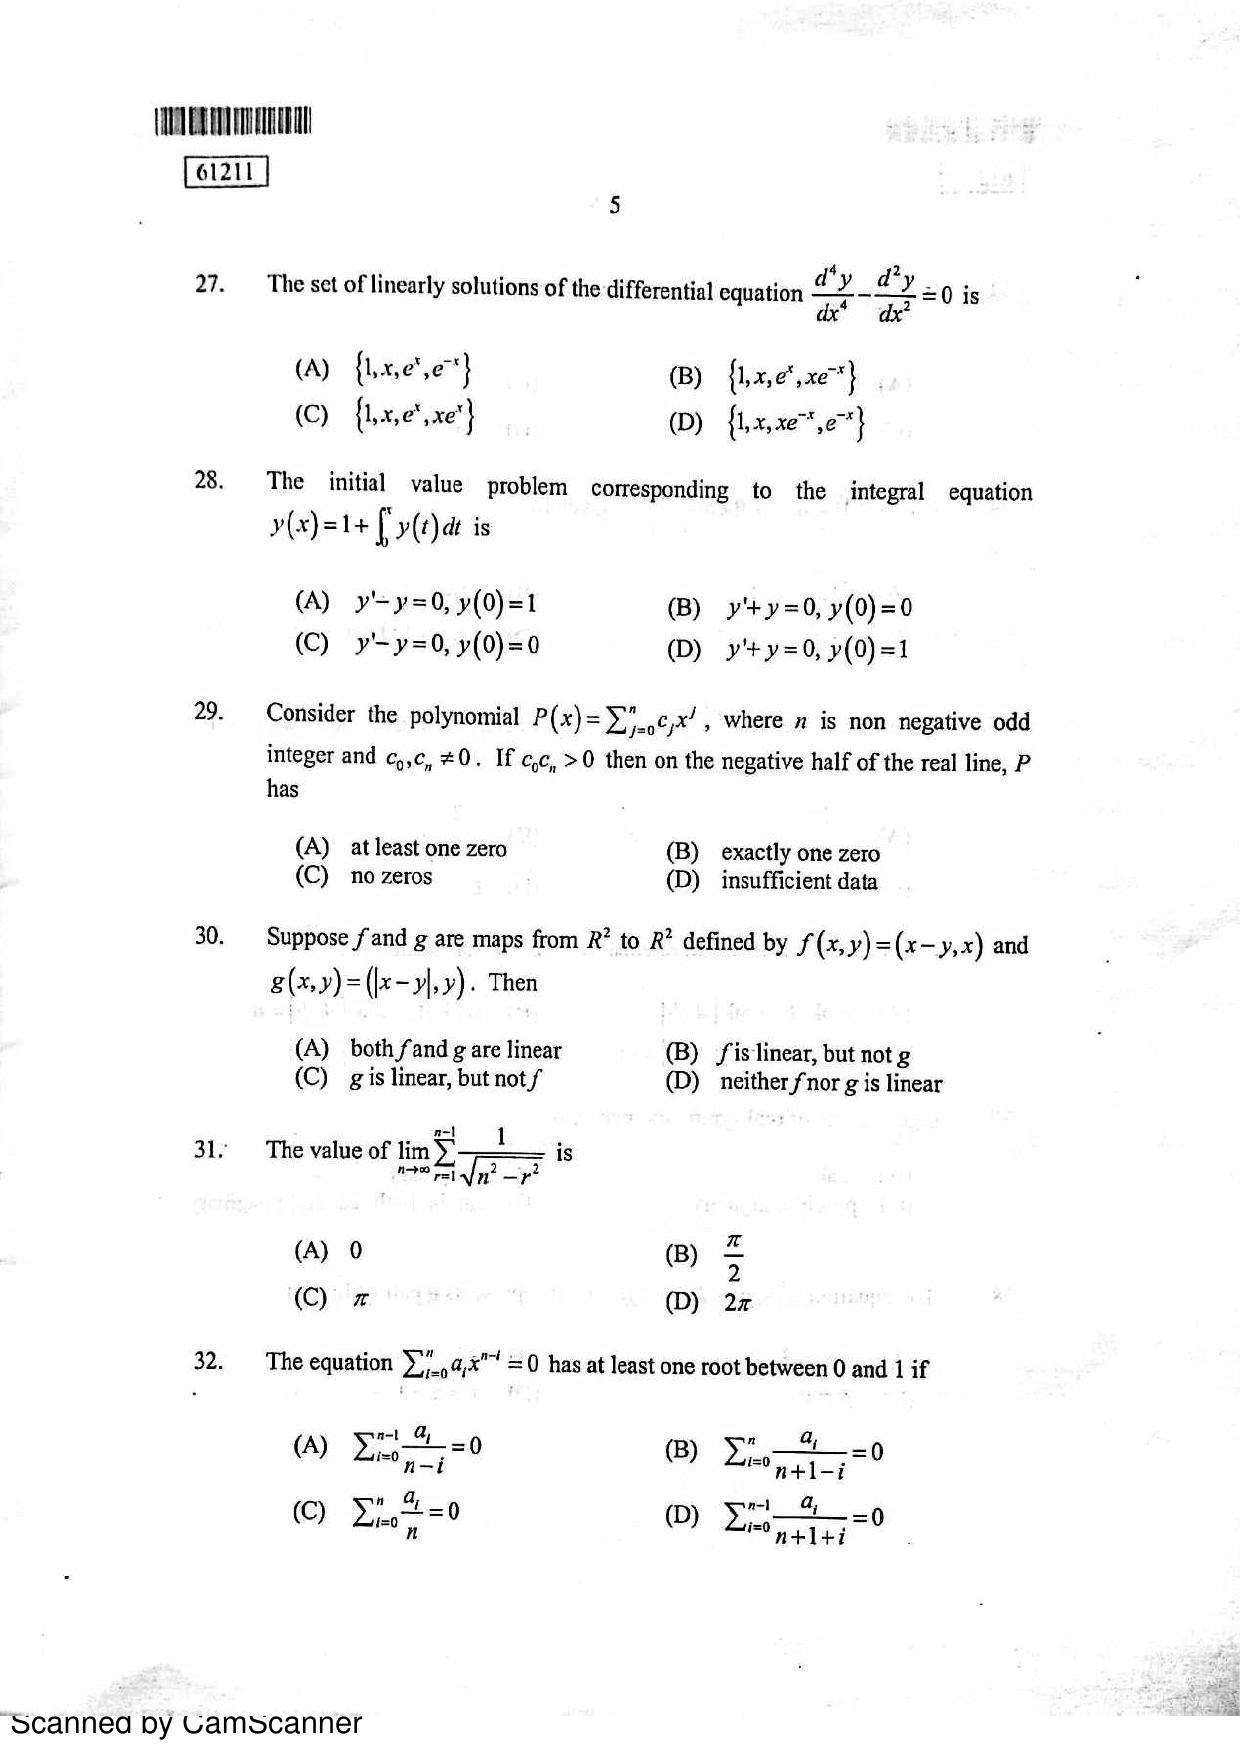 61211
5
27. The set of linearly solutions of the differential equation d⁴y/dx⁴ − d²y/dx² = 0 is
(A) {1, x, eˣ, e⁻ˣ} (B) {1, x, eˣ, xe⁻ˣ}
(C) {1, x, eˣ, xeˣ} (D) {1, x, xe⁻ˣ, e⁻ˣ}
28. The initial value problem corresponding to the integral equation
y(x) = 1 + ∫₀ˣ y(t) dt is
(A) y'− y = 0, y(0) = 1 (B) y'+ y = 0, y(0) = 0
(C) y'− y = 0, y(0) = 0 (D) y'+ y = 0, y(0) = 1
29. Consider the polynomial P(x) = ∑ⁿⱼ₌₀ cⱼxʲ , where n is non negative odd
integer and c₀, cₙ ≠ 0 . If c₀cₙ > 0 then on the negative half of the real line, P
has
(A) at least one zero (B) exactly one zero
(C) no zeros (D) insufficient data
30. Suppose f and g are maps from R² to R² defined by f(x, y) = (x − y, x) and
g(x, y) = (|x − y|, y) . Then
(A) both f and g are linear (B) f is linear, but not g
(C) g is linear, but not f (D) neither f nor g is linear
31. The value of lim n→∞ ∑ r=1 n−1 1/√(n² − r²) is
(A) 0 (B) π/2
(C) π (D) 2π
32. The equation ∑ⁿᵢ₌₀ aᵢxⁿ⁻ⁱ = 0 has at least one root between 0 and 1 if
(A) ∑ⁿ⁻¹ᵢ₌₀ aᵢ/(n − i) = 0 (B) ∑ⁿᵢ₌₀ aᵢ/(n + 1 − i) = 0
(C) ∑ⁿᵢ₌₀ aᵢ/n = 0 (D) ∑ⁿ⁻¹ᵢ₌₀ aᵢ/(n + 1 + i) = 0
Scanned by CamScanner